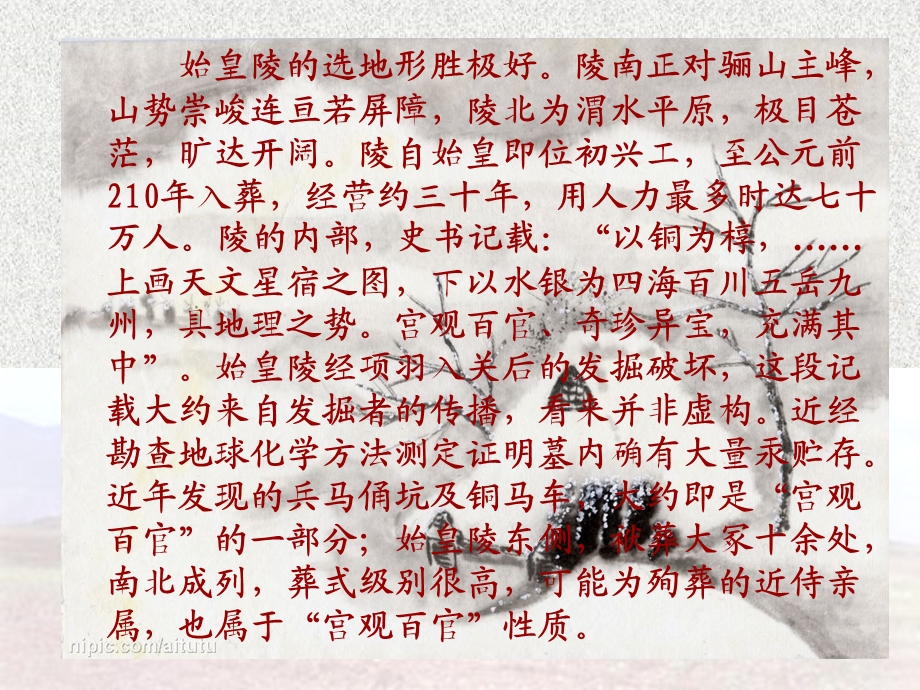 始皇陵的选地形胜极好。陵南正对骊山主峰，
山势崇峻连亘若屏障，陵北为渭水平原，极目苍
茫，旷达开阔。陵自始皇即位初兴工，至公元前
210年入葬，经营约三十年，用人力最多时达七十
万人。陵的内部，史书记载：“以铜为椁，……
上画天文星宿之图，下以水银为四海百川五岳九
州，具地理之势。宫观百官、奇珍异宝，充满其
中”。始皇陵经项羽入关后的发掘破坏，这段记
载大约来自发掘者的传播，看来并非虚构。近经
勘查地球化学方法测定证明墓内确有大量汞贮存。
近年发现的兵马俑坑及铜马车，大约即是“宫观
百官”的一部分；始皇陵东侧，被葬大冢十余处，
南北成列，葬式级别很高，可能为殉葬的近侍亲
属，也属于“宫观百官”性质。
nipic.com/aitutu